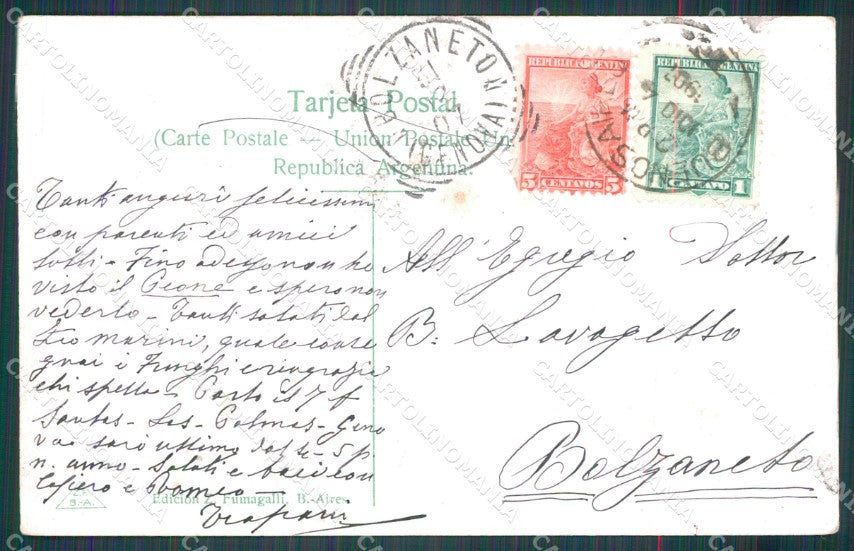 Tarjeta Postal
(Carte Postale — Union Postale Un
Republica Argentina.
BOLZANETO
GENOVA
REPUBLICA ARGENTINA
5 CENTAVOS 5
REPUBLICA ARGENTINA
CENTAVO 1
BUENOS AIRES
Tanti auguri felicissimi
con parenti ed amici
tutti - Fino adesso non ho
visto il e spero non
vederlo - Tanti saluti dal
Zio Marini, quale
i Funghi e ringrazia
chi spetta - Parto il 7 f
Santos - Las - Palmas - Geno
va sarò ultimo
n. anno - Saluti e baci con
e Romeo
Trapani
All' Egregio Dottor
B. Lavagetto
Bolzaneto
Edicion Z. Fumagalli, B.-Aires
B.-A.
CARTOLINOMANIA